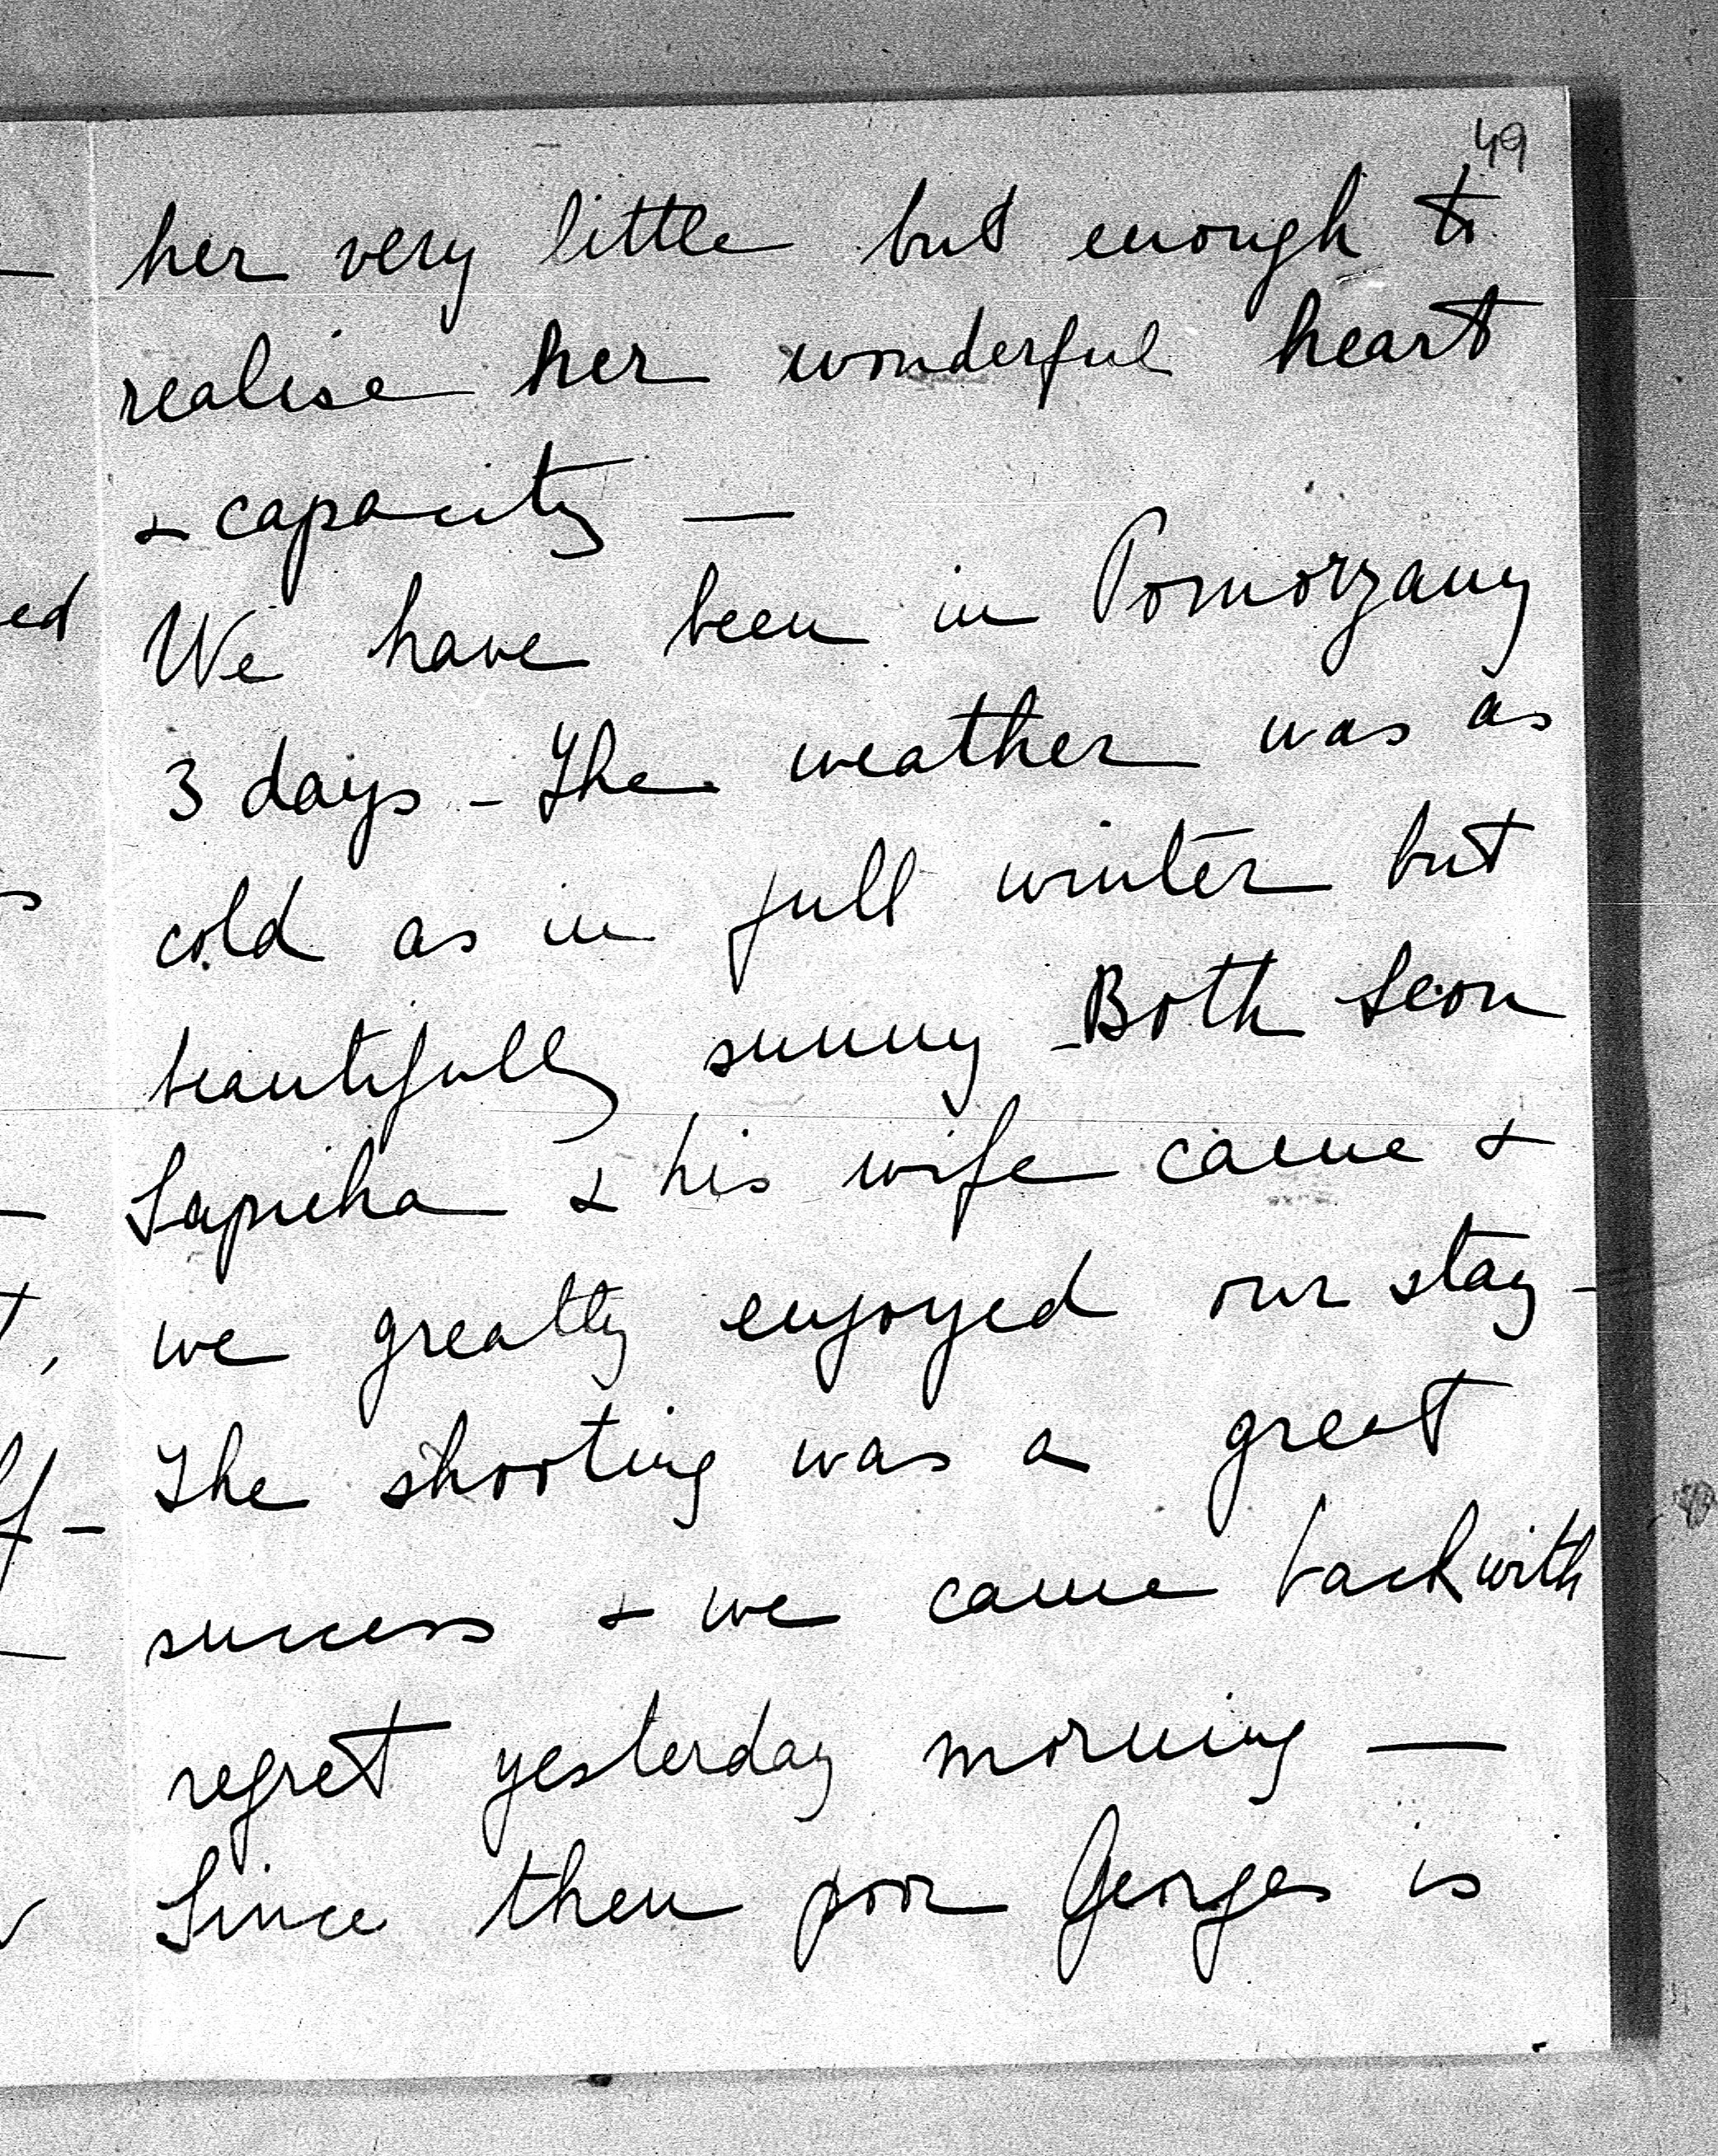 49
her very little but enough to
realise her wonderful heart
+ capacity —
We have been in Pomorzany
3 days - The weather was as
cold as in full winter but
beautifully sunny - Both Leon
Sapieha + his wife came +
we greatly enjoyed our stay -
The shooting was a great
success + we came back with
regret yesterday morning —
Since then poor Georges is